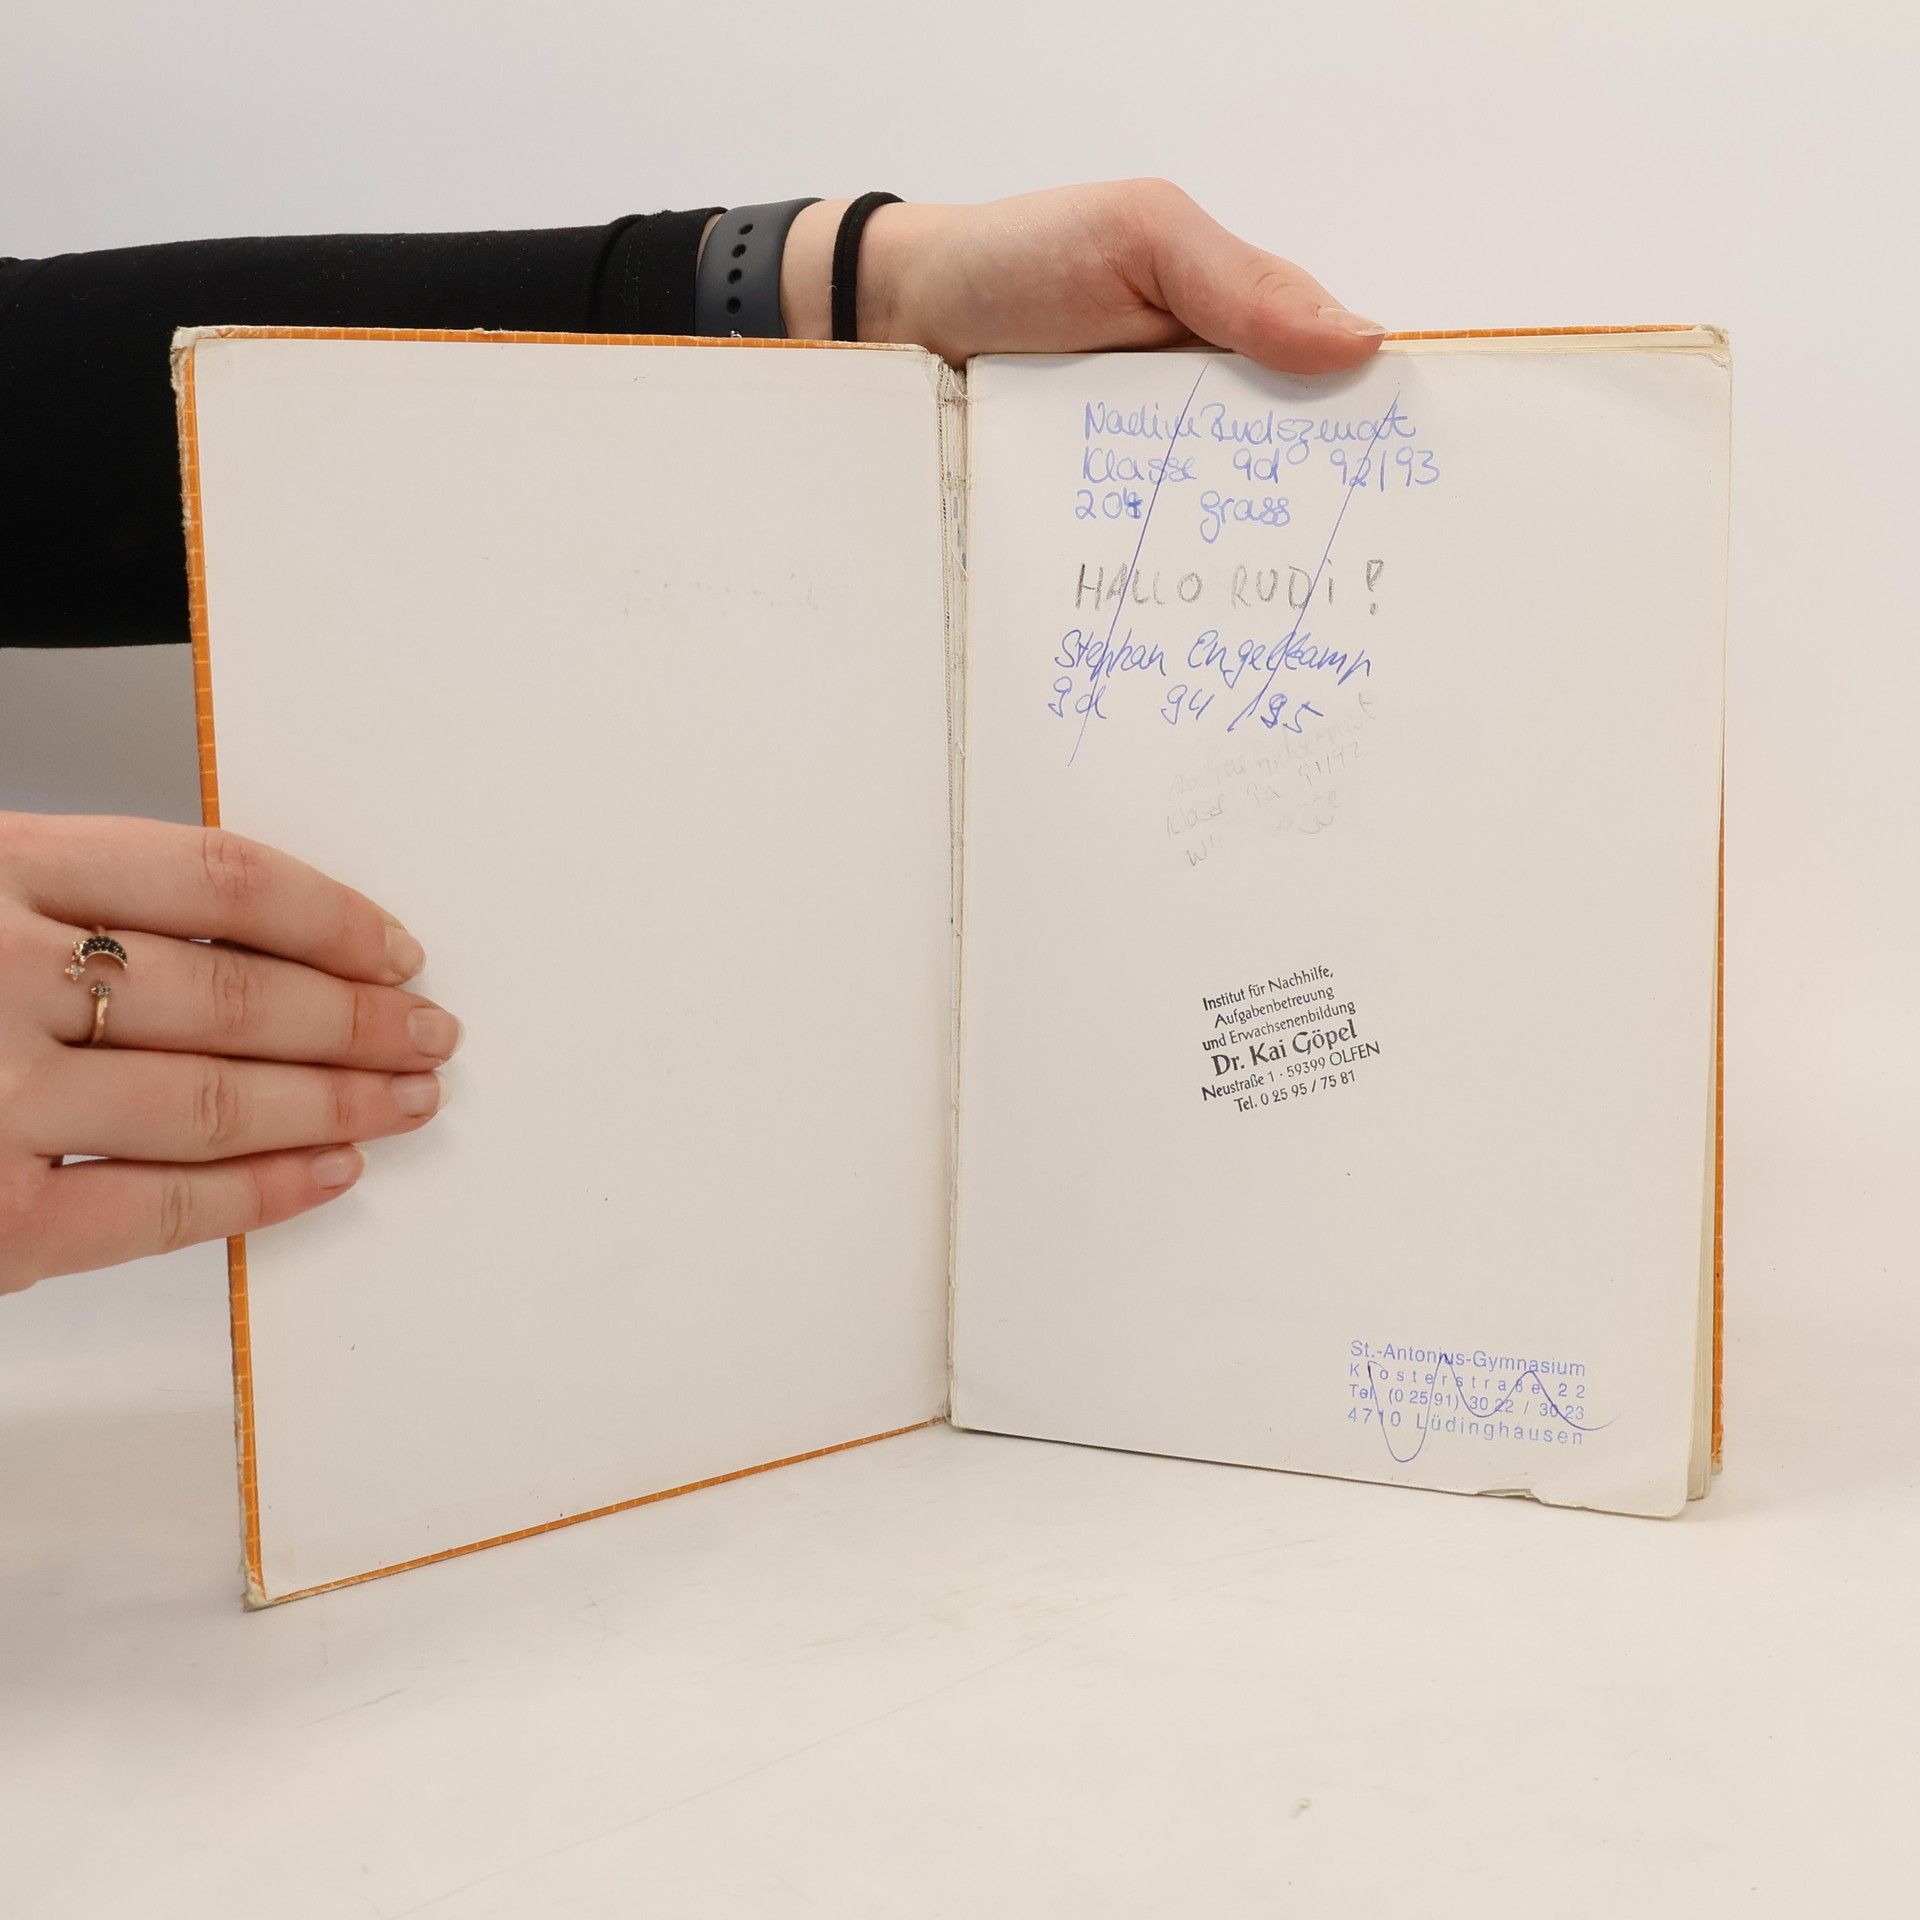 Nadine Rudszenat
Klasse 9d 92/93
204 grass
HALLO RUDi!
Stephan Engelkamp
9d 94/95
Klasse 9a 91/92
Institut für Nachhilfe,
Aufgabenbetreuung
und Erwachsenenbildung
Dr. Kai Göpel
Neustraße 1 · 59399 OLFEN
Tel. 0 25 95 / 75 81
St.-Antonius-Gymnasium
Klosterstraße 22
Tel. (0 25 91) 30 22 / 30 23
4710 Lüdinghausen